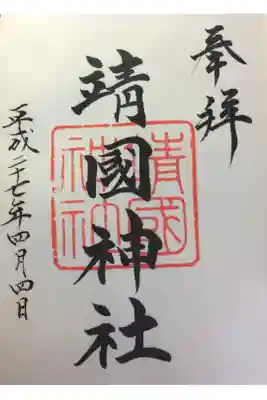 奉拝
靖國神社
平成二十七年四月四日
靖國
神社